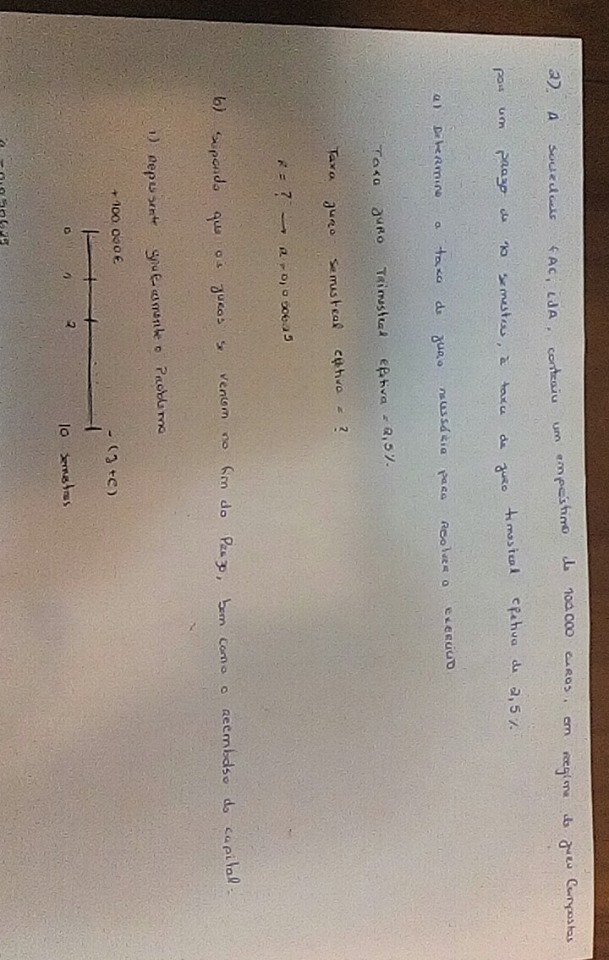 2). A sociedade FAC, LDA, contraiu um empréstimo de 100.000 euros, em regime de juro Compostos
por um prazo de 10 semestres, à taxa de juro trimestral efetiva de 2,5%.
a) Determine a taxa de juro necessária para resolver o exercício
Taxa juro Trimestral efetiva = 2,5%.
Taxa juro semestral efetiva = ?
R = ? → a = 0,050625
b) Supondo que os juros se vencem no fim do Prazo, bem como o reembolso do capital:
i) Represente graficamente o Problema
+100.000€ - (J+C)
0 1 2 10 semestres
a = 0,050625